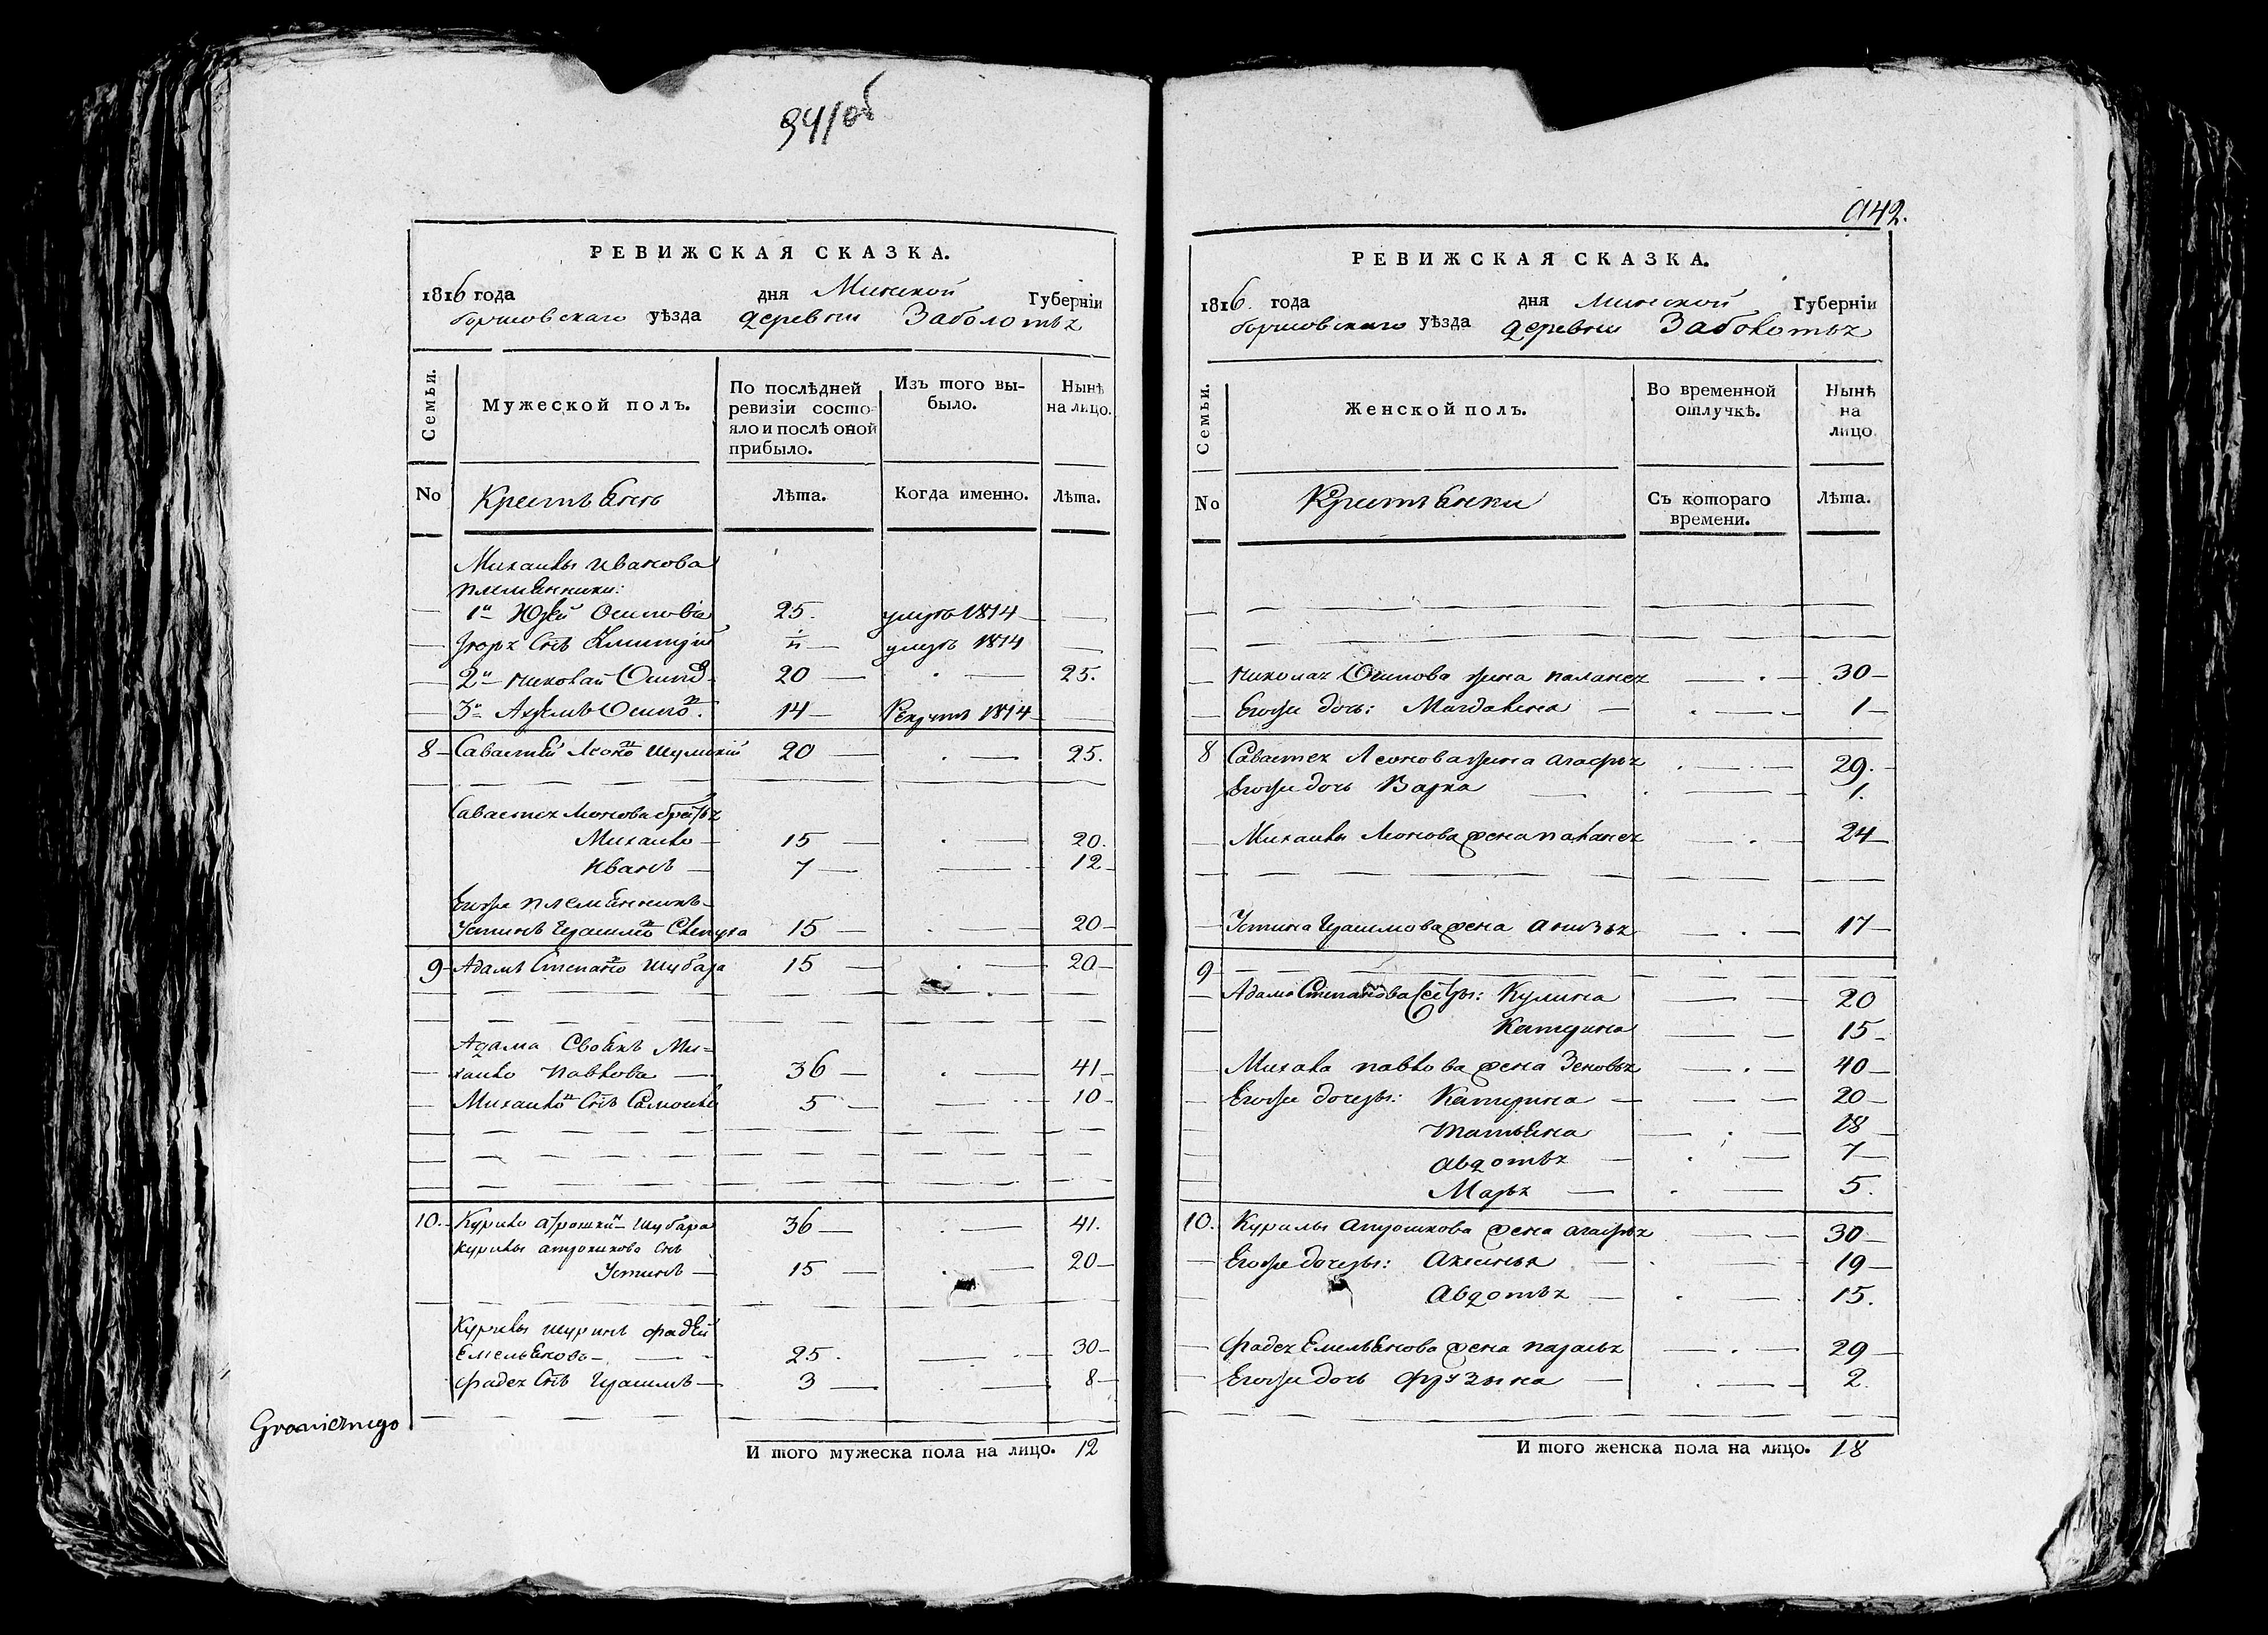 941об
РЕВИЖСКАЯ СКАЗКА.
1816 года дня Минской Губерніи
Борисовскаго уѣзда деревни Заболотья
Семьи. Мужеской полъ. По послѣдней ревизіи состояло и послѣ оной прибыло. Изъ того выбыло. Нынѣ на лицо.
No Крестьяне Лѣта. Когда именно. Лѣта.
Михайлы Иванова
племянники:
1й Юзей Осиповъ 25. умеръ 1814
сынъ 4 умеръ 1814
2й Николай Осипо 20 25.
3й Осипо 14 Рекрут 1814
8 Савастей Леоно Шумскій 20 25.
Савастея Леонова братья
Михайло 15 20.
Иванъ 7 12
Егоже племянникъ
Устинъ Герасимо 15 20
9 Адамъ Степано Шубара 15 20
Адама Своякъ Ми-
хайло Павлова 36 41
Михайло сынъ Самойло 5 10
10. Курило Шубара 36 41.
Курилы сынъ
Устинъ 15 20
Курилы шуринъ Фадѣй
Емельяновъ 25. 30
Фадея сынъ Герасимъ 3 8
Granicznego
И того мужеска пола на лицо. 12
942.
РЕВИЖСКАЯ СКАЗКА.
1816. года дня Минской Губерніи
Борисовскаго уѣзда деревни Заболотья
Семьи. Женской полъ. Во временной отлучкѣ. Нынѣ на лицо
No Крестьянки Съ котораго времени. Лѣта.
Николая Осипова жена Паланея 30
Егоже дочь: Магдалена 1
8 Савастея Леонова жена Агафья 29.
Егоже дочь Варка 1.
Михайлы Леонова жена Паланея 24
Устина Герасимова жена 17
9
Адама Степанова сестры: Кулина 20
Катерина 15
Михала Павлова жена Зеновья 40
Егоже дочеры: Катерина 20
Татьяна 18
Авдотья 7
Марья 5.
10. Курилы Атрошкова жена Агафья 30
Егоже дочеры: Аксинья 19
Авдотья 15.
Фадея Емельянова жена Парасья 29
Егоже дочь Фрузына 2.
И того женска пола на лицо. 18